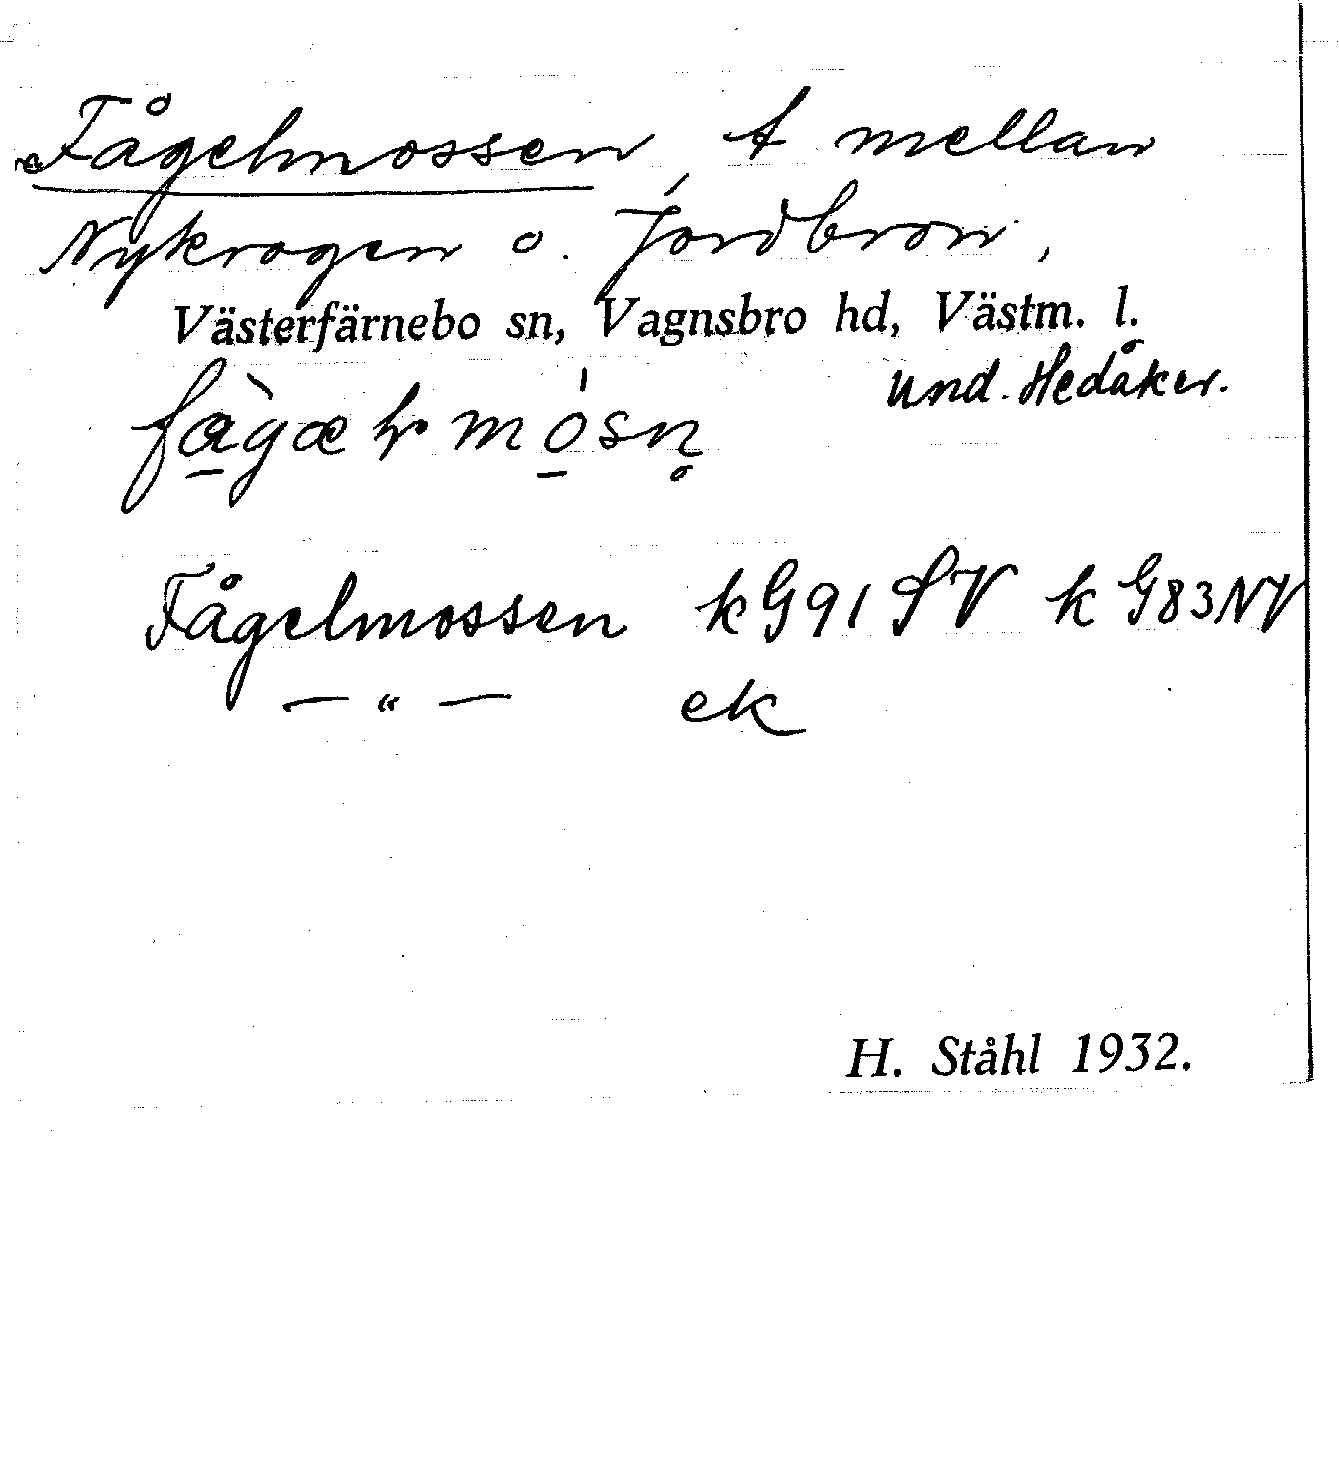 Fågelmossen, t mellan
Nykrogen o. Jordbron,
Västerfärnebo sn, Vagnsbro hd, Västm. l.
und. Hedåker.
Fågelmossen kG91SV kG83NV
—"— ek
H. Ståhl 1932.